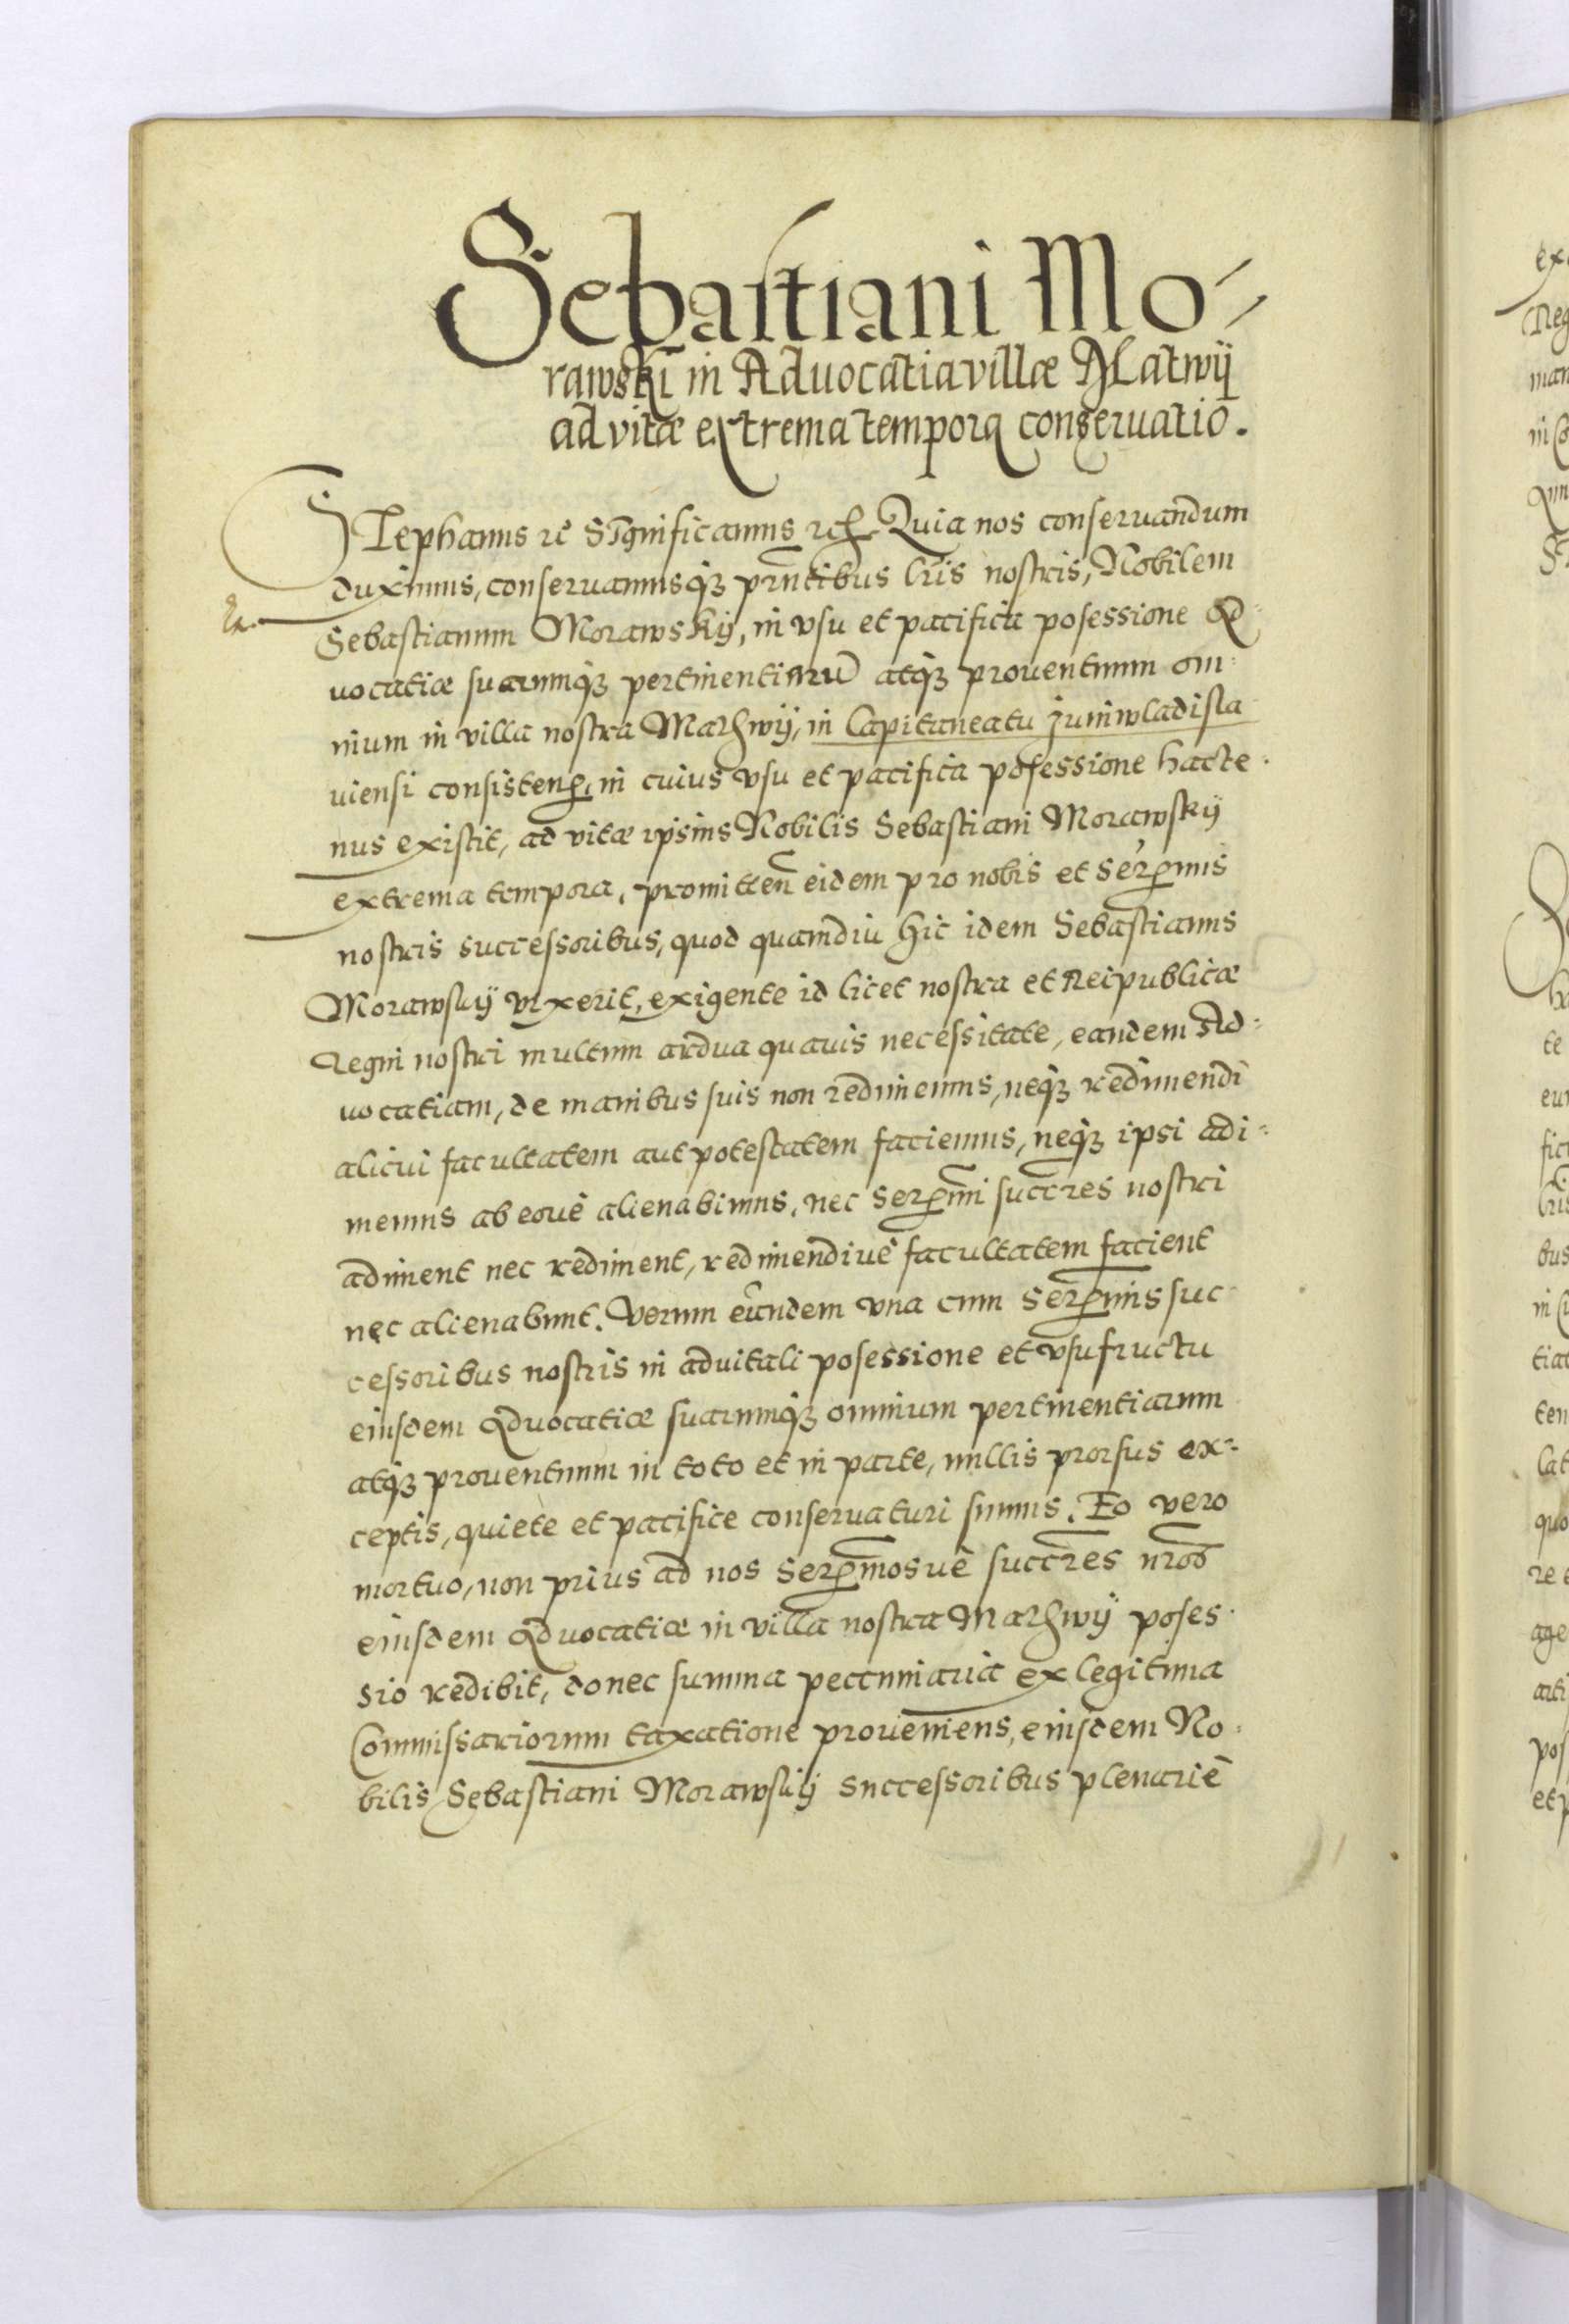 Sebastiani Mo-
rawski in Advocatia villæ Matwÿ
ad vitæ extrema tempora conseruatio.
Stephanus rc Significamus rc Quia nos conseruandum
duximus, conseruamusqz pntibus lris nostris, Nobilem
Sebastianum Morawskÿ, in vsu et pacifica posessione Ad-
uocatiæ suarumqz pertinentiarū atqz prouentuum om-
nium in villa nostra Mathwÿ, in Capitaneatu Juniwladisla-
uiensi consisten, in cuius vsu et pacifica posessione hacte-
nus existit, ad vitæ ipsius Nobilis Sebastiani Morawskÿ
extrema tempora, promitten eidem pro nobis et Sermis
nostris successoribus, quod quamdiu hic idem Sebastianus
Morawskÿ vixerit, exigente id licet nostra et Reipublicæ
Regni nostri multum ardua quauis necessitate, eandem Ad-
uocatiam, de manibus suis non redimemus, neqz redimendi
alicui facultatem aut potestatem faciemus, neqz ipsi adi-
memus ab eoue alienabimus, nec Sermi succres nostri
adiment nec rediment, redimendiue facultatem facient
nec alienabunt. Verum eundem vna cum Sermis suc-
cessoribus nostris in aduitali posessione et vsufructu
eiusdem Aduocatiæ suarumqz omnium pertinentiarum
atqz prouentuum in toto et in parte, nullis prorsus ex-
ceptis, quiete et pacifice conseruaturi sumus. Eo vero
mortuo, non prius ad nos Sermosue succres nros
eiusdem Aduocatiæ in villa nostra Mathwÿ poses-
sio redibit, donec summa peccuniaria ex legitima
Commissariorum taxatione proueniens, eiusdem No-
bilis Sebastiani Morawskÿ successoribus plenariè